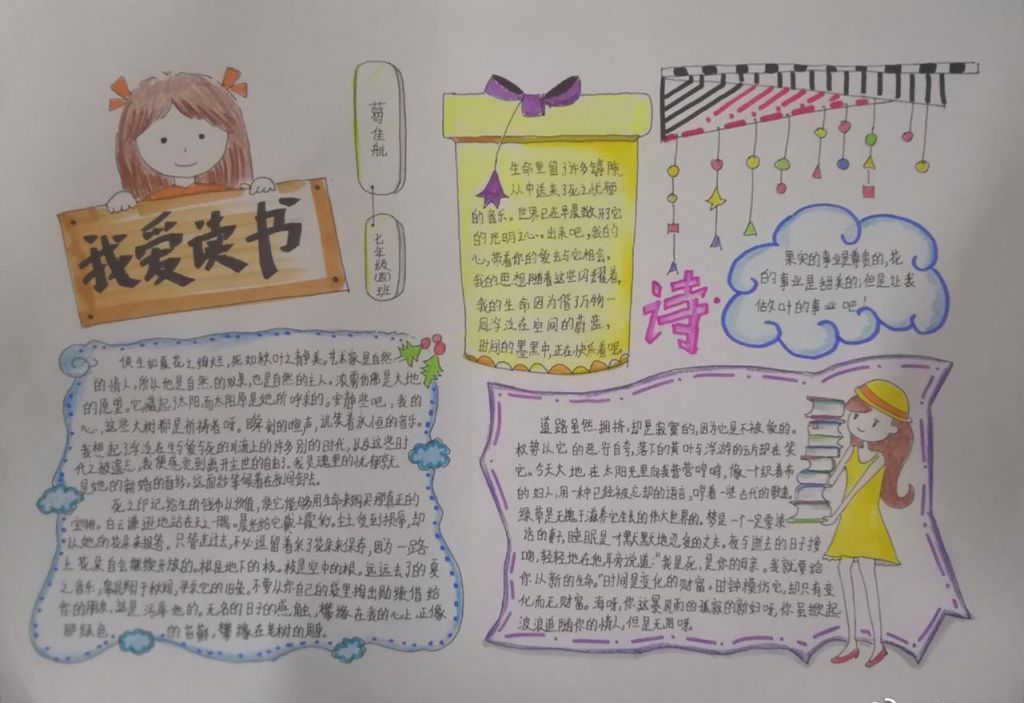 我爱读书
葛佳航
七年级(四)班
生命里留了许多罅隙,
从中送来了死之忧郁
的音乐。世界已在早晨敞开了它
的光明之心。出来吧,我的
心,带着你的爱去与它相会。
我的思想随着这些闪耀着,
我的生命因为借了万物一
同浮泛在空间的蔚蓝,
时间的墨黑中,正在快乐着呢。
诗
果实的事业是尊贵的,花
的事业是甜美的;但是让我
做叶的事业吧!
使生如夏花之绚烂,死如秋叶之静美。艺术家是自然
的情人,所以他是自然的奴隶,也是自然的主人。浓雾仿佛是大地
的愿望。它藏起了太阳而太阳原是她所呼求的。安静些吧,我的
心,这些大树都是祈祷者呀。瞬刻的喧声,讥笑着永恒的音乐。
我想起了浮泛在生与爱与死的川流上的许多别的时代,以及这些时
代之被遗忘,我便感觉到离开尘世的自由了。我灵魂里的忧郁
是她的新婚的面纱。这面纱等候着在夜间卸去。
死之印记给生的钱币以价值,使它能够用生命来购买那真正的
宝物。白云谦逊地站在天之一隅。晨光给它戴上霞彩。尘土受到损辱,却
以她的花朵来报答。只管走过去,不必逗留着采了花朵来保存,因为一路
上花朵自会继续开放的。根是地下的枝。枝是空中的根。远远去了的夏
之音乐,翱翔于秋间,寻求它的旧垒。不要从你自己的袋里掏出勋绩借给
你的朋友,这是污辱他的。无名的日子的感触,攀缘在我的心上,正像
那绿色 的苔藓,攀缘在老树的周身。
道路虽然拥挤,却是寂寞的,因为它是不被爱的。
权势以它的恶行自夸,落下的黄叶与浮游的云片却在笑
它。今天大地在太阳光里向我营营哼鸣,像一个织着布
的妇人,用一种已经被忘却的语言,哼着一些古代的歌曲。
绿草是无愧于它所生长的伟大世界的。梦是一个一定要谈
话的妻子,睡眠是一个默默地忍受的丈夫。夜与逝去的日子接
吻,轻轻地在他耳旁说道:“我是死,是你的母亲。我就要给
你以新的生命。”时间是变化的财富。时钟模仿它,却只有变
化而无财富。海呀,你这暴风雨的孤寂的新妇呀,你虽掀起
波浪追随你的情人,但是无用呀。